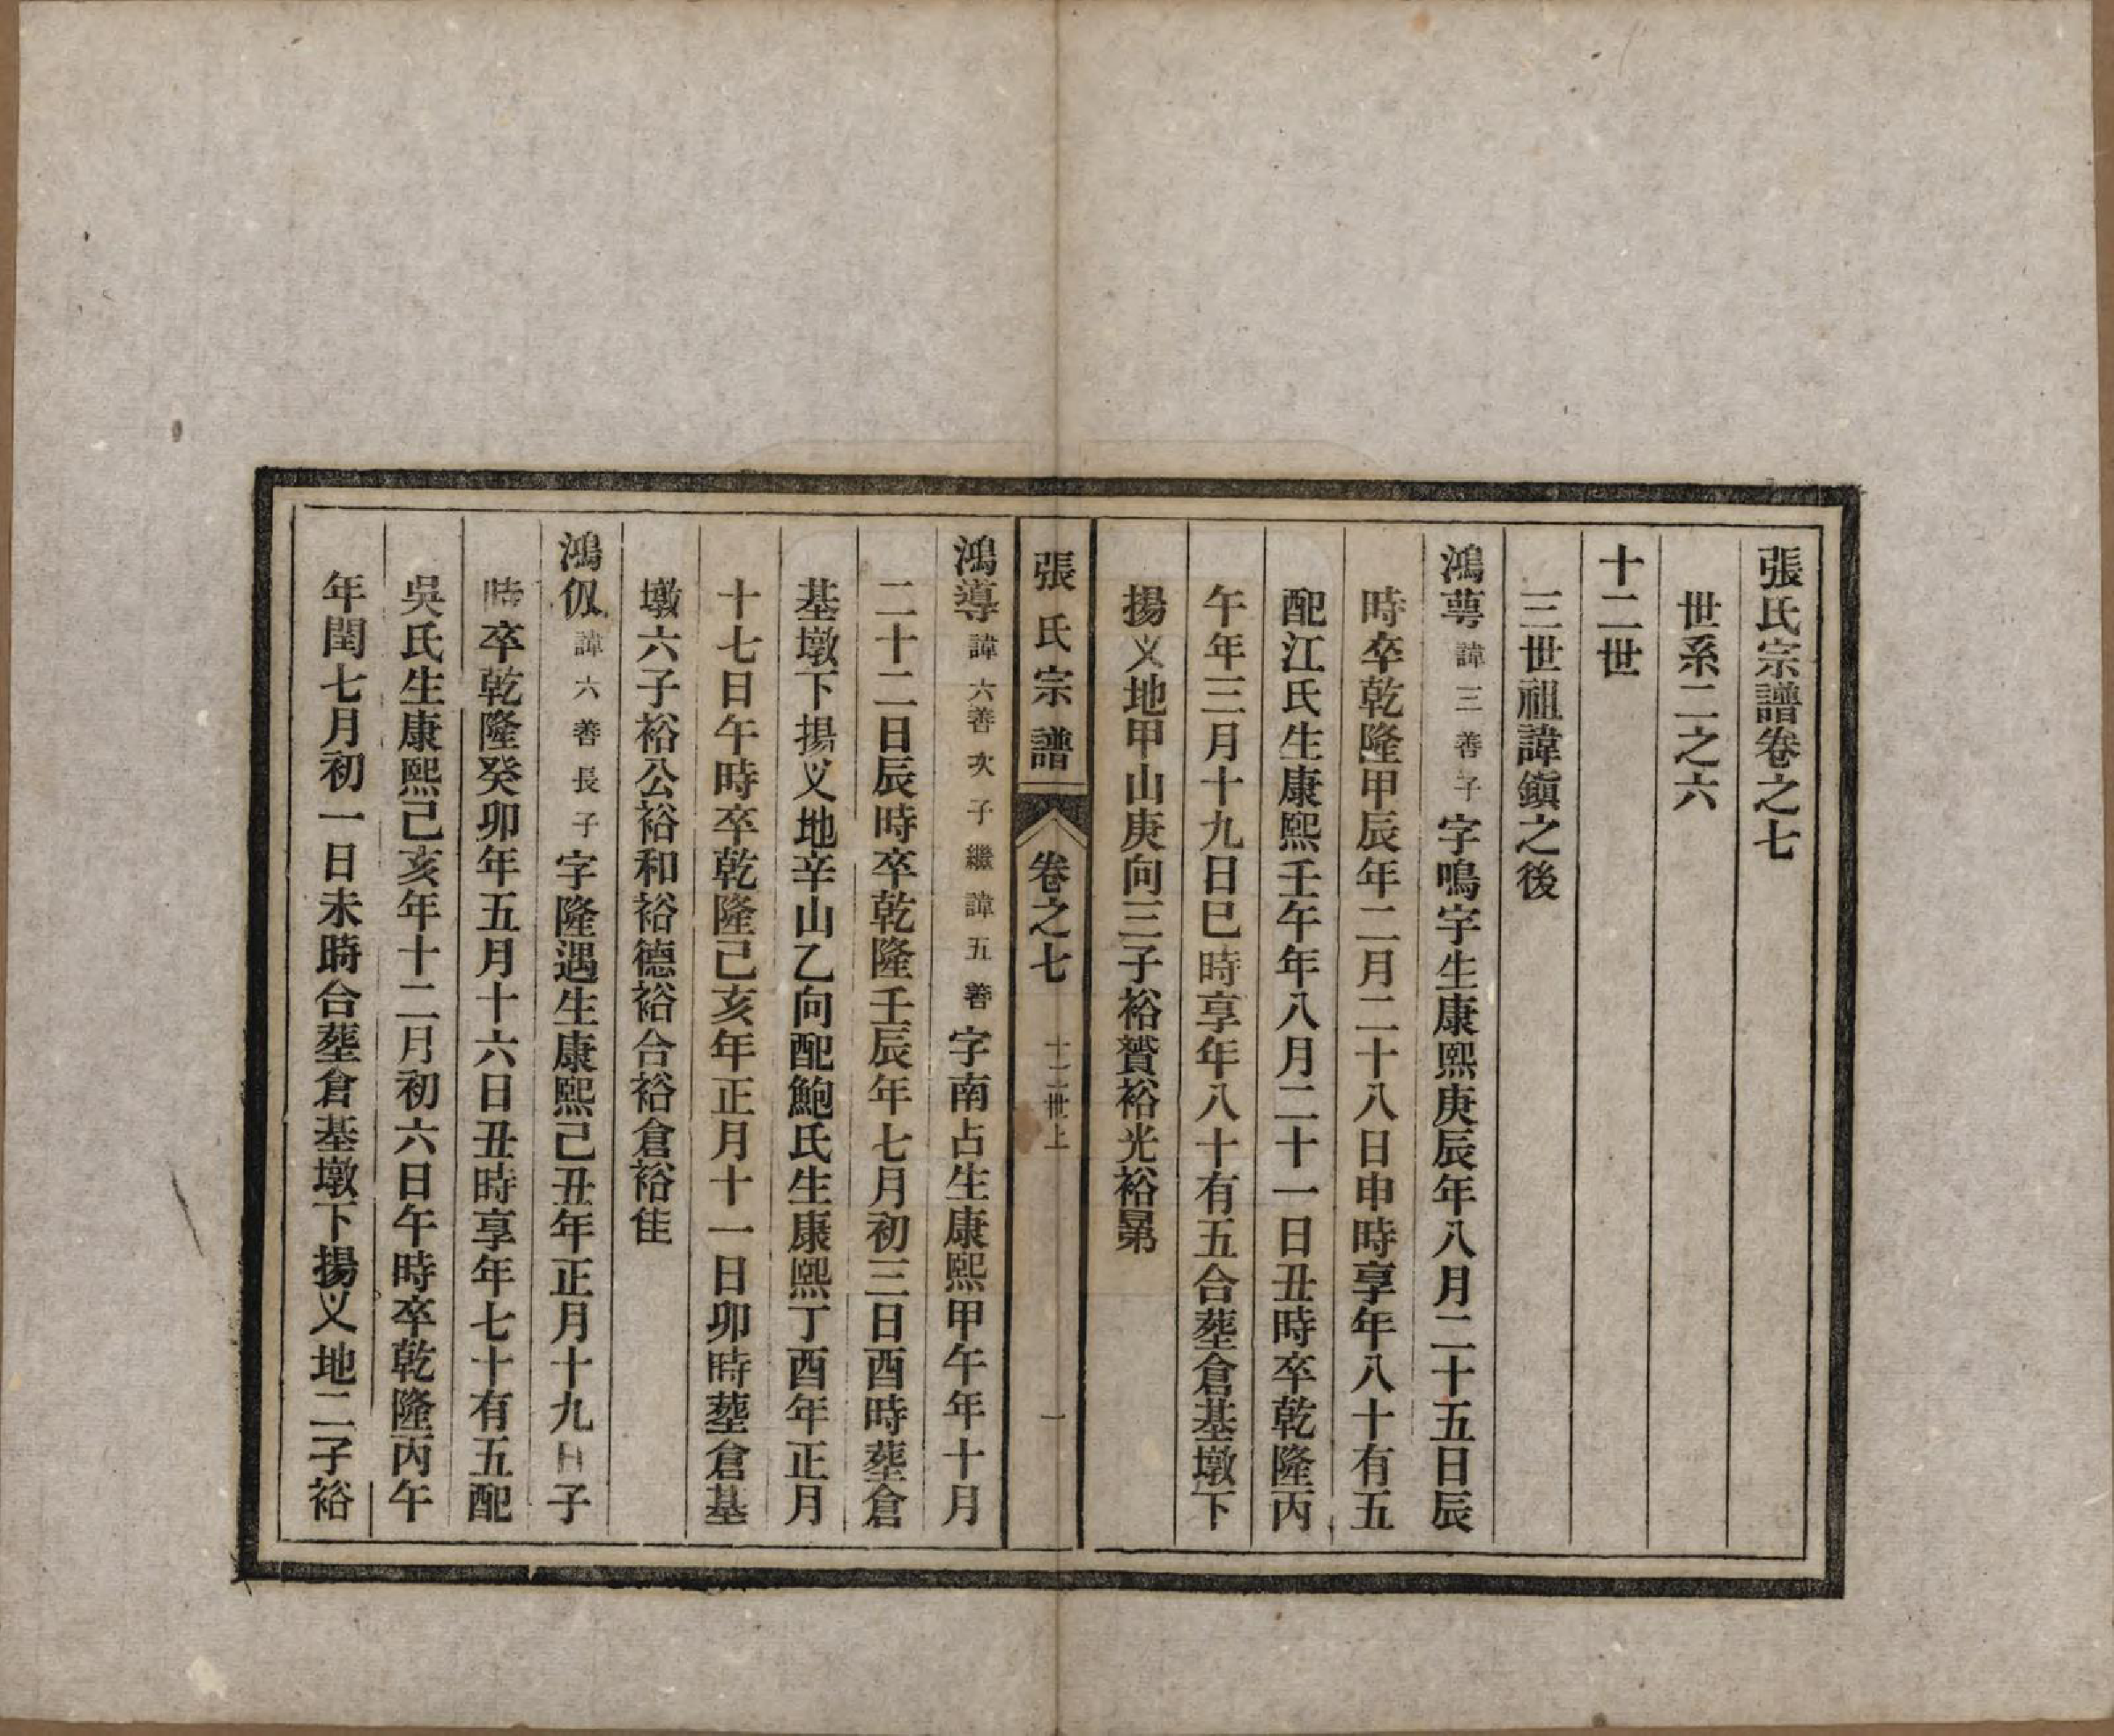 張氏宗譜卷之七
世系二之六
十二世
三世祖諱鎮之後
鴻蕚諱三善子字鳴字生康熙庚辰年八月二十五日辰
時卒乾隆甲辰年二月二十八日申時享年八十有五
配江氏生康熙壬午年八月二十一日丑時卒乾隆丙
午年三月十九日巳時享年八十有五合塟倉基墩下
揚义地甲山庚向三子裕贇裕光裕㬪
張氏宗譜 卷之七 十二世上 一
鴻導諱六善次子繼諱五善字南占生康熙甲午年十月
二十二日辰時卒乾隆壬辰年七月初三日酉時塟倉
基墩下揚义地辛山乙向配鮑氏生康熙丁酉年正月
十七日午時卒乾隆己亥年正月十一日卯時塟倉基
墩六子裕公裕和裕德裕合裕倉裕佳
鴻仭諱六善長子字隆遇生康熙己丑年正月十九日子
時卒乾隆癸卯年五月十六日丑時享年七十有五配
吳氏生康熙己亥年十二月初六日午時卒乾隆丙午
年閏七月初一日未時合塟倉基墩下揚义地二子裕